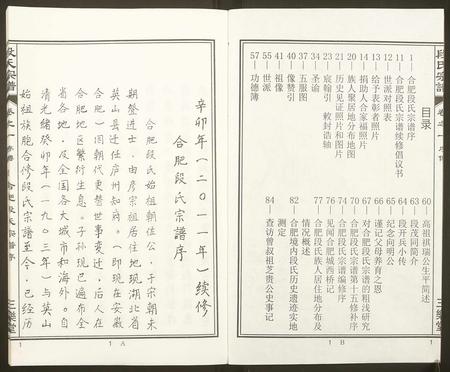 段氏宗譜
卷之一 序傳
三樂堂
目录
1 — 合肥段氏宗谱序
11 — 合肥段氏宗谱续修倡议书
12 — 世派对照表
13 — 给予表彰者照片
14 — 捐助人合家福照片
20 — 族人聚居地分布地图
21 — 历史见证照片和图片
23 — 宸翰引 敕封诰轴
34 — 圣谕
37 — 五服图
40 — 像赞引
41 — 祖像
55 — 世派
57 — 功德簿
60 — 高祖祺瑞公生平简述
63 — 段茂同简介
64 — 段开兵小传
65 — 纪念向明公
66 — 谨记父母养育之恩
67 — 对合肥段氏宗谱的粗浅研究
70 — 合肥段氏宗谱第十五修补序
74 — 合肥段氏宗谱编修序
76 — 见闻合肥城西桥记
77 — 合肥段氏族人居住地分布及
情况概述
82 — 合肥境内段氏历史遗迹实地
测定
84 — 查访曾叔祖芝贵公史事记
1 B
辛卯年(二〇一一年)续修
合肥段氏宗谱序
合肥段氏始祖朝佐公,于宋朝末
期登进士,由原宗祖居住地现湖北省
英山县迁任庐州知府。(即现在安徽
合肥)因朝代更替世事变迁,后人在
合肥地区繁衍生息。子孙现已遍布全
省各地,及全国各大城市和海外。自
清光绪癸卯年(一九〇三年)与英山
始祖族胞合修段氏宗谱至今,已经历
1 A
段氏宗譜
卷之一 序傳
合肥段氏宗谱序
三樂堂